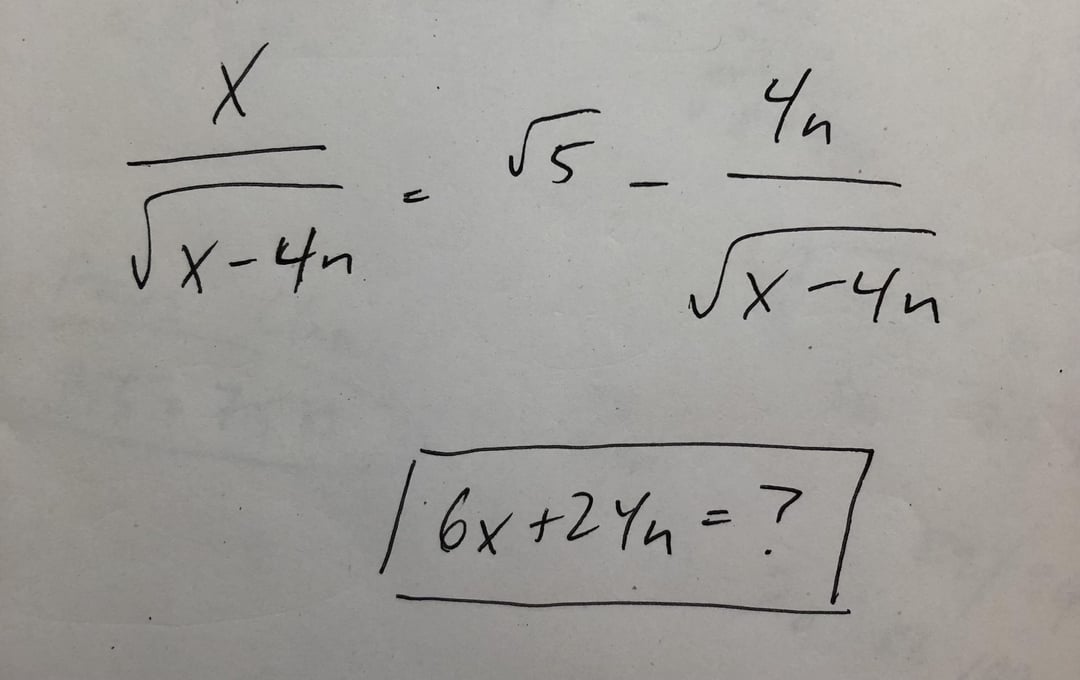 x/√(x-4n) = √5 - 4n/√(x-4n)
6x+24n = ?